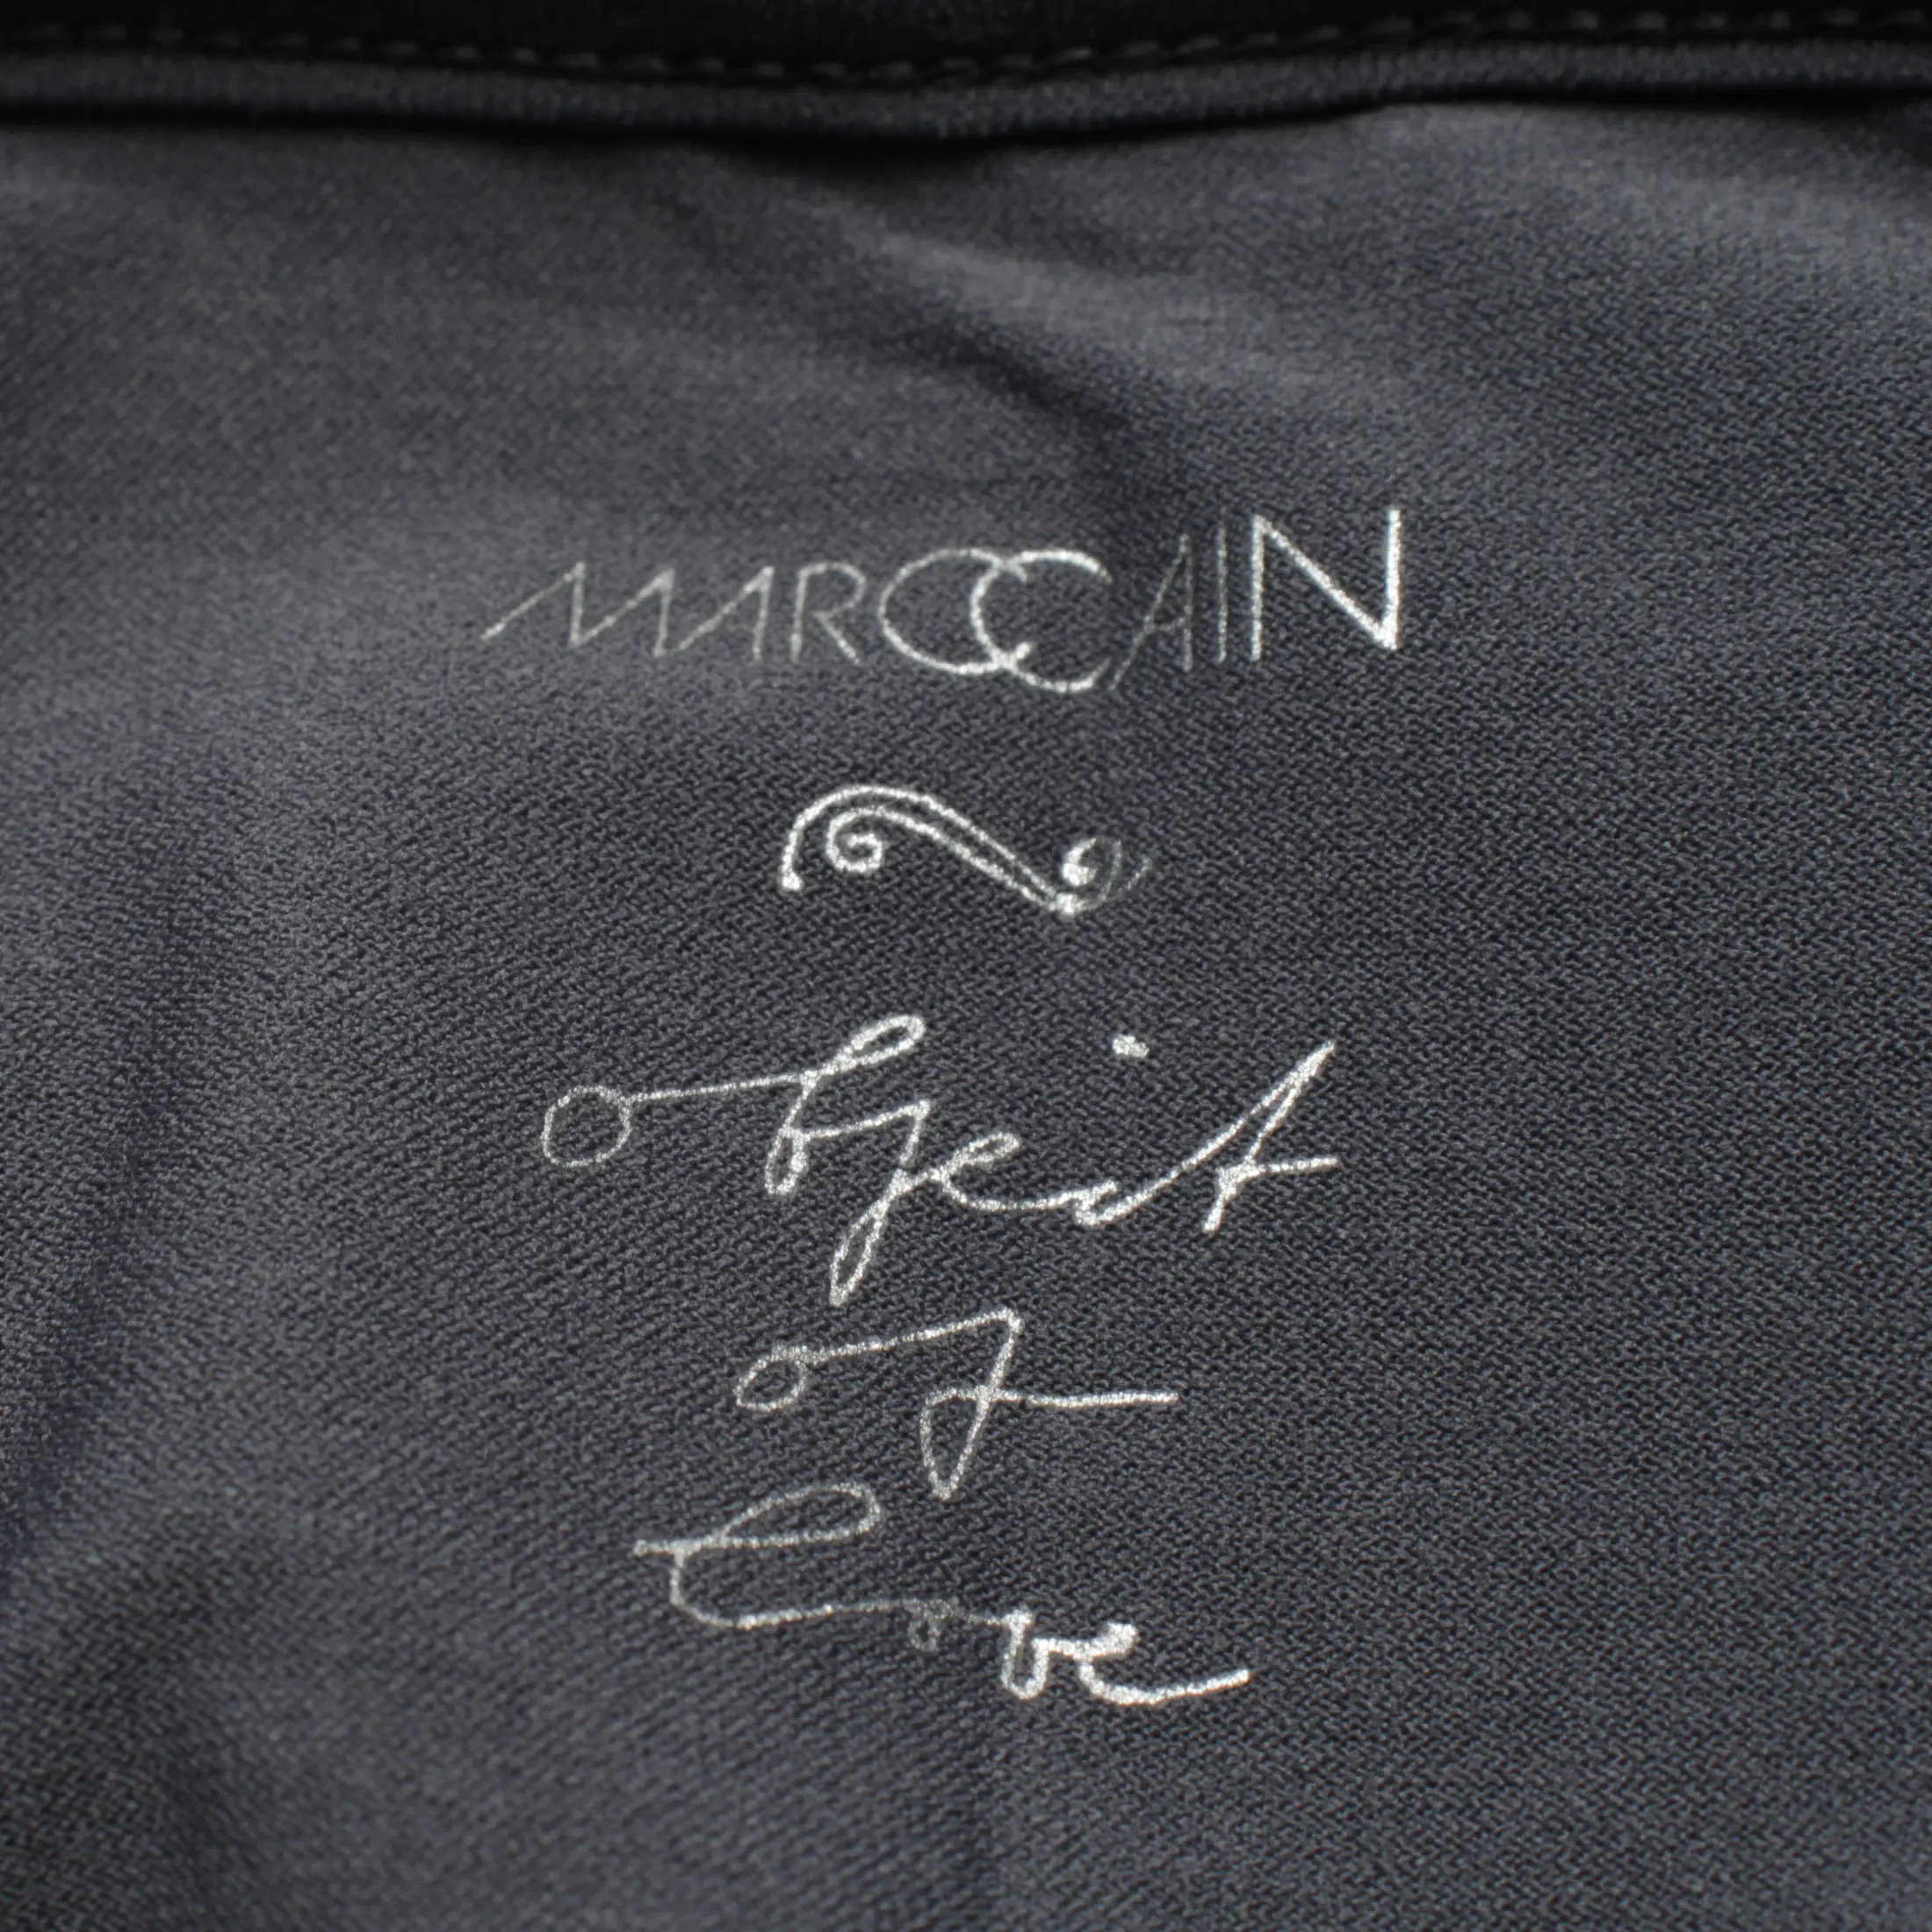 MARCCAIN
object
of
love